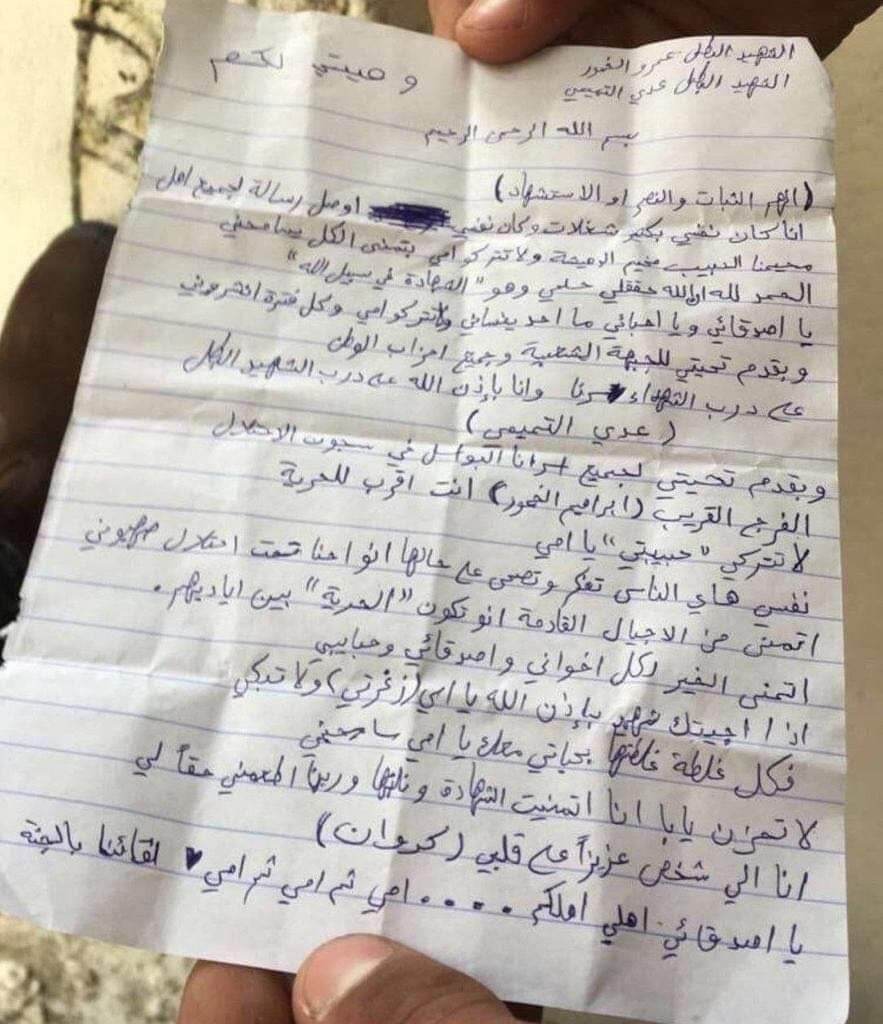 الشهيد البطل عمرو الخمور
الشهيد البطل عدي التميمي
وصيتي لكم
بسم الله الرحمن الرحيم
(اللهم الثبات والنصر او الاستشهاد)
انا كان نفسي بكثير شغلات وكان نفسي اوصل رسالة لجميع اهل
مخيمنا الحبيب مخيم الدهيشة ولا تتركو امي بتمنى الكل يسامحني
الحمد لله ان الله حققلي حلمي وهو "الشهادة في سبيل الله"
يا اصدقائي ويا احبائي ما احد ينساني ولا تتركو امي وكل فترة
وبقدم تحيتي للجبهة الشعبية وجميع احزاب الوطن
على درب الشهداء سرنا وانا بإذن الله على درب الشهيد البطل
(عدي التميمي)
وبقدم تحيتي لجميع اسرانا البواسل في سجون الاحتلال
الفرج القريب (ابراهيم الخمور) انت اقرب للحرية
لا تتركي "حبيبتي" يا امي
نفسي هاي الناس تفكر وتصحى على حالها انو احنا تحت احتلال صهيوني
اتمنى من الاجيال القادمة انو تكون "الحرية" بين اياديهم.
اتمنى الخير لكل اخواني واصدقائي وحبايبي
اذا اجيتك شهيد بإذن الله يا امي (زغرتي) ولا تبكي
فكل غلطة غلطتها بحياتي معك يا امي سامحيني
لا تحزن يابا انا اتمنيت الشهادة ونلتها وربنا اطعمني حقاً لي
انا الي شخص عزيزاً على قلبي (كروان)
يا اصدقائي اهلي اهلكم ..... امي ثم امي ثم امي ♥ لقائنا بالجنة